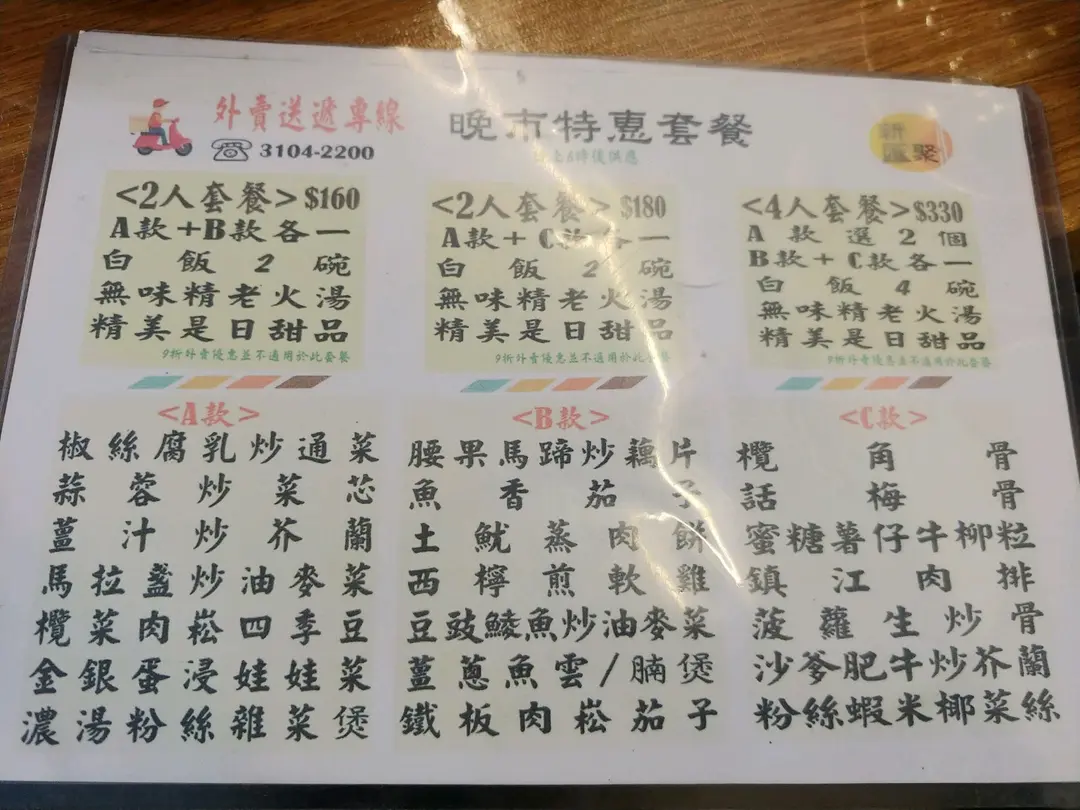 外賣送遞專線
3104-2200
晚市特惠套餐
6時後供應
新匯聚
<2人套餐>$160
A款+B款各一
白飯2碗
無味精老火湯
精美是日甜品
9折外賣優惠並不適用於此套餐
<2人套餐>$180
A款+C款各一
白飯2碗
無味精老火湯
精美是日甜品
9折外賣優惠並不適用於此套餐
<4人套餐>$330
A款選2個
B款+C款各一
白飯4碗
無味精老火湯
精美是日甜品
9折外賣優惠並不適用於此套餐
<A款>
椒絲腐乳炒通菜
蒜蓉炒菜芯
薑汁炒芥蘭
馬拉盞炒油麥菜
欖菜肉崧四季豆
金銀蛋浸娃娃菜
濃湯粉絲雜菜煲
<B款>
腰果馬蹄炒藕片
魚香茄子
土魷蒸肉餅
西檸煎軟雞
豆豉鯪魚炒油麥菜
薑蔥魚雲/腩煲
鐵板肉崧茄子
<C款>
欖角骨
話梅骨
蜜糖薯仔牛柳粒
鎮江肉排
菠蘿生炒骨
沙爹肥牛炒芥蘭
粉絲蝦米椰菜絲